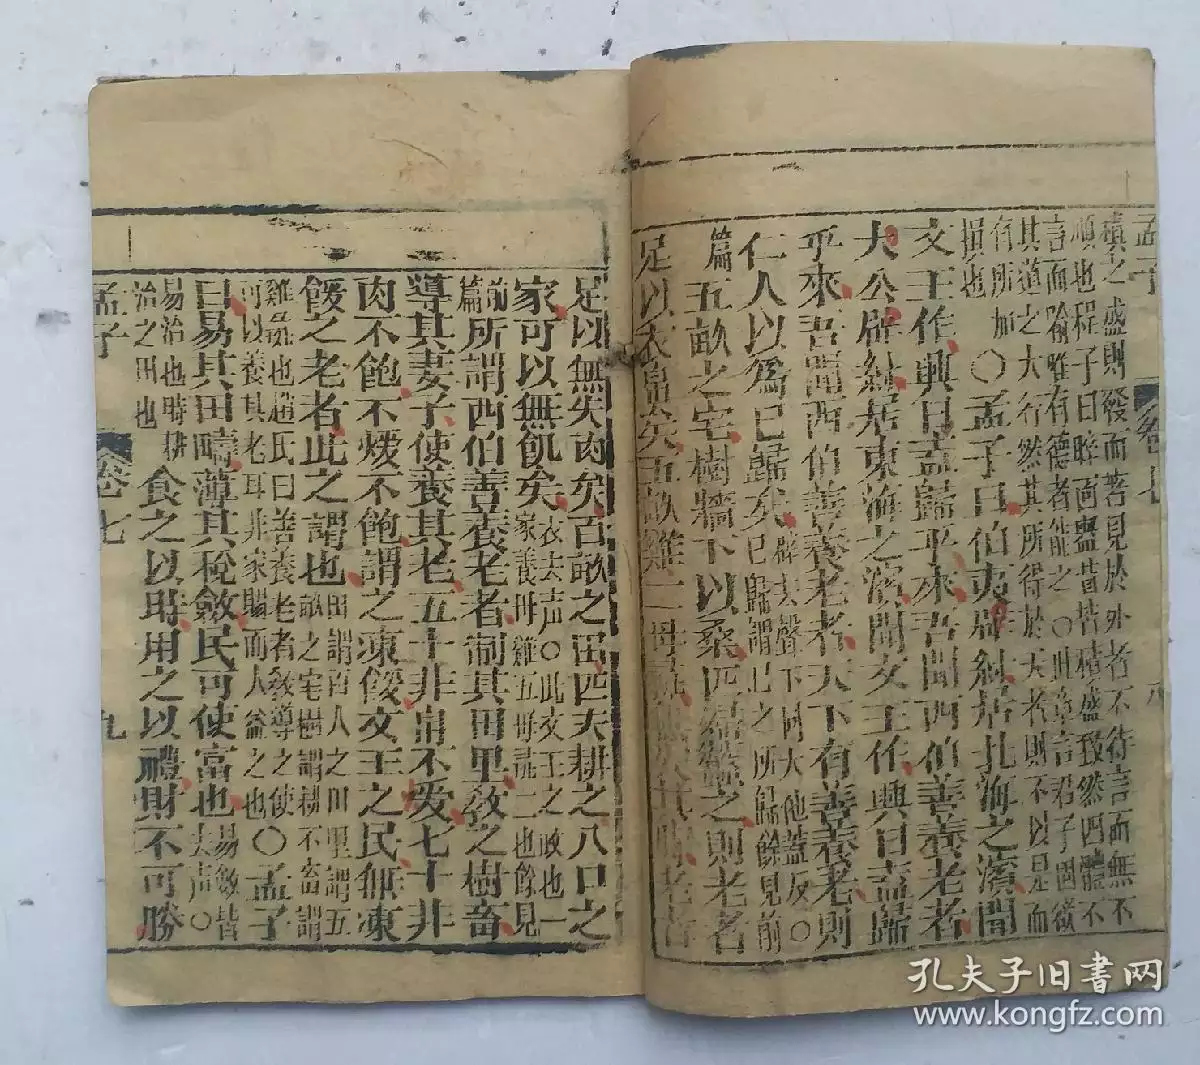 孟子 卷七 八
積之盛則發而著見於外者不待言而無不
順也程子曰睟面盎背皆積盛致然四體不
言而喻唯有德者能之○此章言君子固欲
其道之大行然其所得於天者則不以是而
有所加
損也
○孟子曰伯夷辟紂居北海之濱聞
文王作興曰盍歸乎來吾聞西伯善養老者
大公辟紂居東海之濱聞文王作興曰盍歸
乎來吾聞西伯善養老者天下有善養老則
仁人以爲已歸矣
辟去聲下同大他蓋反○
已歸謂己之所歸餘見前
篇
五畝之宅樹牆下以桑匹婦蠶之則老者
足以衣帛矣五母雞二母彘無失其時老者
足以無失肉矣百畝之田匹夫耕之八口之
家可以無飢矣
衣去声○此文王之政也一
家養母雞五母彘二也餘見
前
篇
所謂西伯善養老者制其田里敎之樹畜
導其妻子使養其老五十非帛不煖七十非
肉不飽不煖不飽謂之凍餒文王之民無凍
餒之老者此之謂也
田謂百人之田里謂五
畝之宅樹謂耕不畜謂
雞彘也趙氏曰善養老者敎導之使
可以養其老耳非家賜而人益之也
○孟子
曰易其田疇薄其稅斂民可使富也
易斂皆
去声○
易治也疇耕
治之田也
食之以時用之以禮財不可勝
孟子 卷七 九
孔夫子旧書网
www.kongfz.com